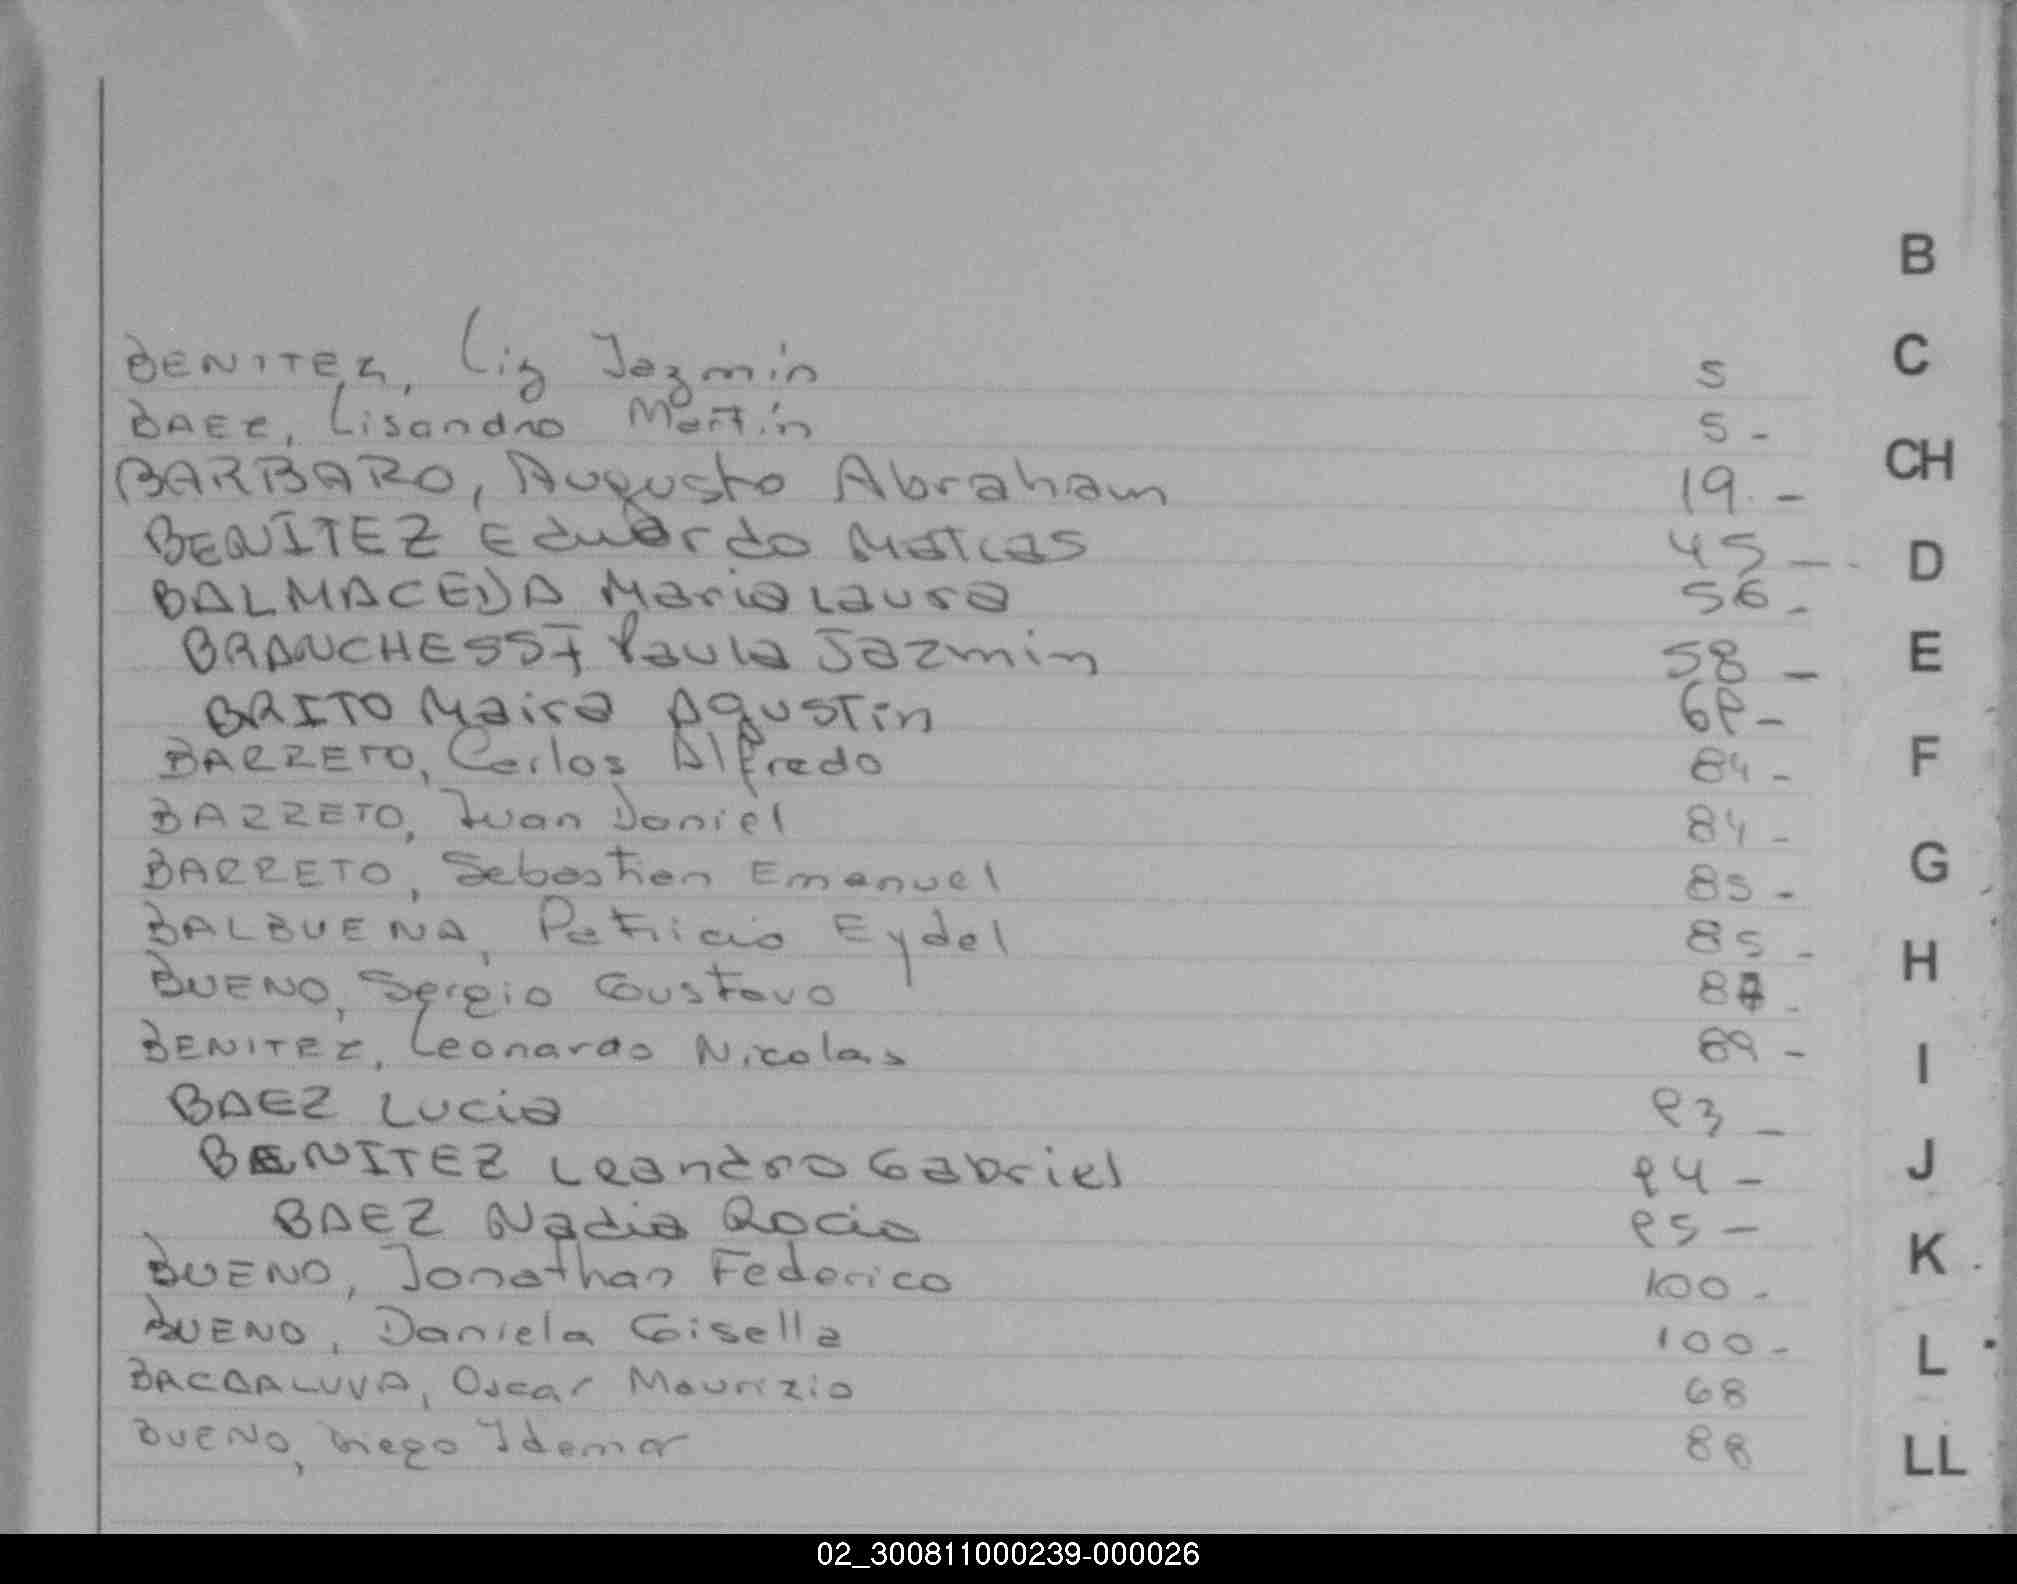 B
C
CH
D
E
F
G
H
I
J
K
L
LL
BENITEZ, Liz Jazmín 5
BAEZ, Lisandro Martín 5 -
BARBARO, Augusto Abraham 19 -
BENÍTEZ Eduardo Matías 45 -
BALMACEDA Maria Laura 56 -
BRANCHESSI Paula Jazmin 58 -
BRITO Maira Agustin 69 -
BARRETO, Carlos Alfredo 84 -
BARRETO, Juan Daniel 84 -
BARRETO, Sebastian Emanuel 85 -
BALBUENA, Patricio Eydel 85 -
BUENO, Sergio Gustavo 87 -
BENITEZ, Leonardo Nicolas 89 -
BAEZ Lucia 93 -
BENITEZ Leandro Gabriel 94 -
BAEZ Nadia Rocio 95 -
BUENO, Jonathan Federico 100 -
BUENO, Daniela Gisella 100 -
BACDALUVA, Oscar Maurizio 68
BUENO, Diego Idemar 88
02_300811000239-000026